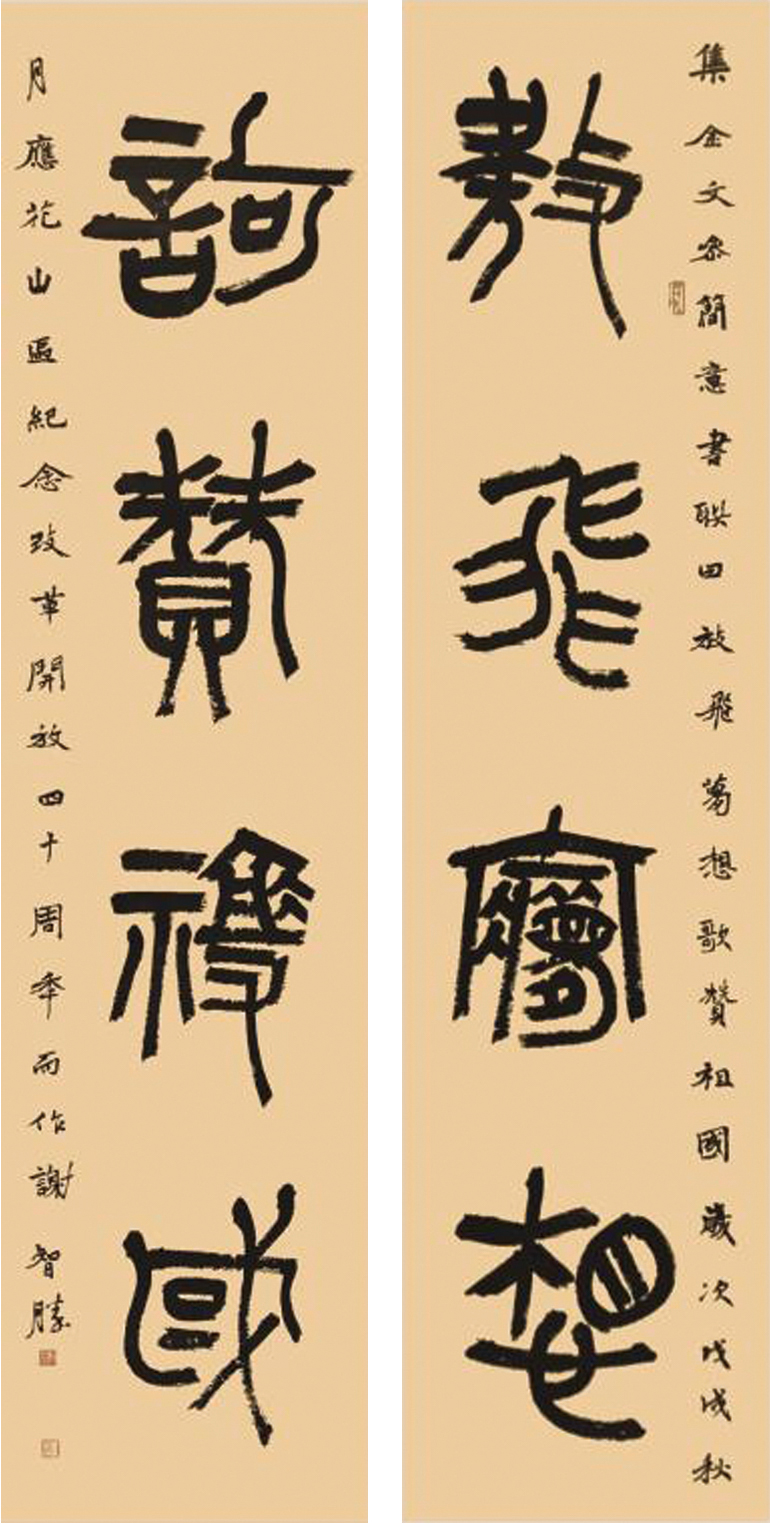 集金文參簡意書聯曰放飛夢想歌贊祖國歲次戊戌秋
放飛夢想
歌贊祖國
月應花山區紀念改革開放四十周年而作謝智勝